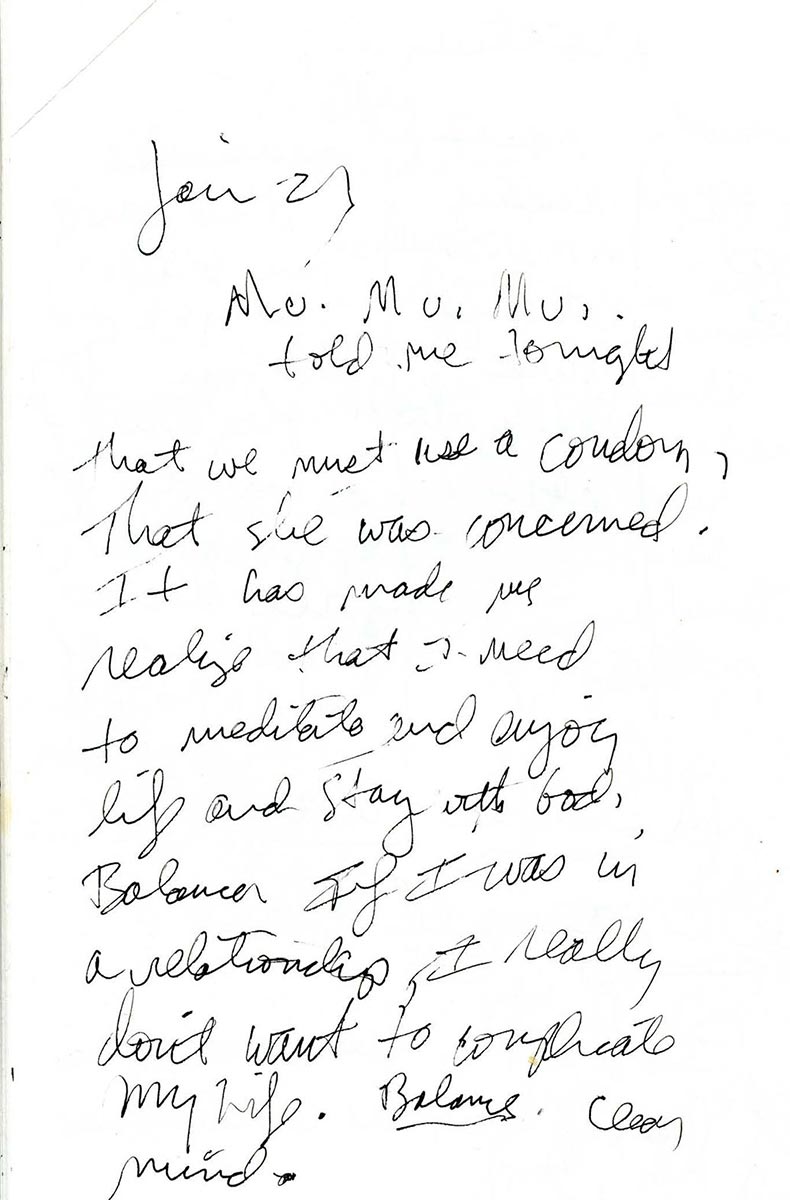 Jan 27
Mu. Mu. Mu.
told me tonight
that we must use a condom,
that she was concerned.
It has made me
realize that I need
to meditate and enjoy
life and stay with God.
Balance If I was in
a relationship, I really
don't want to complicate
My life. Balance. Clear
mind.